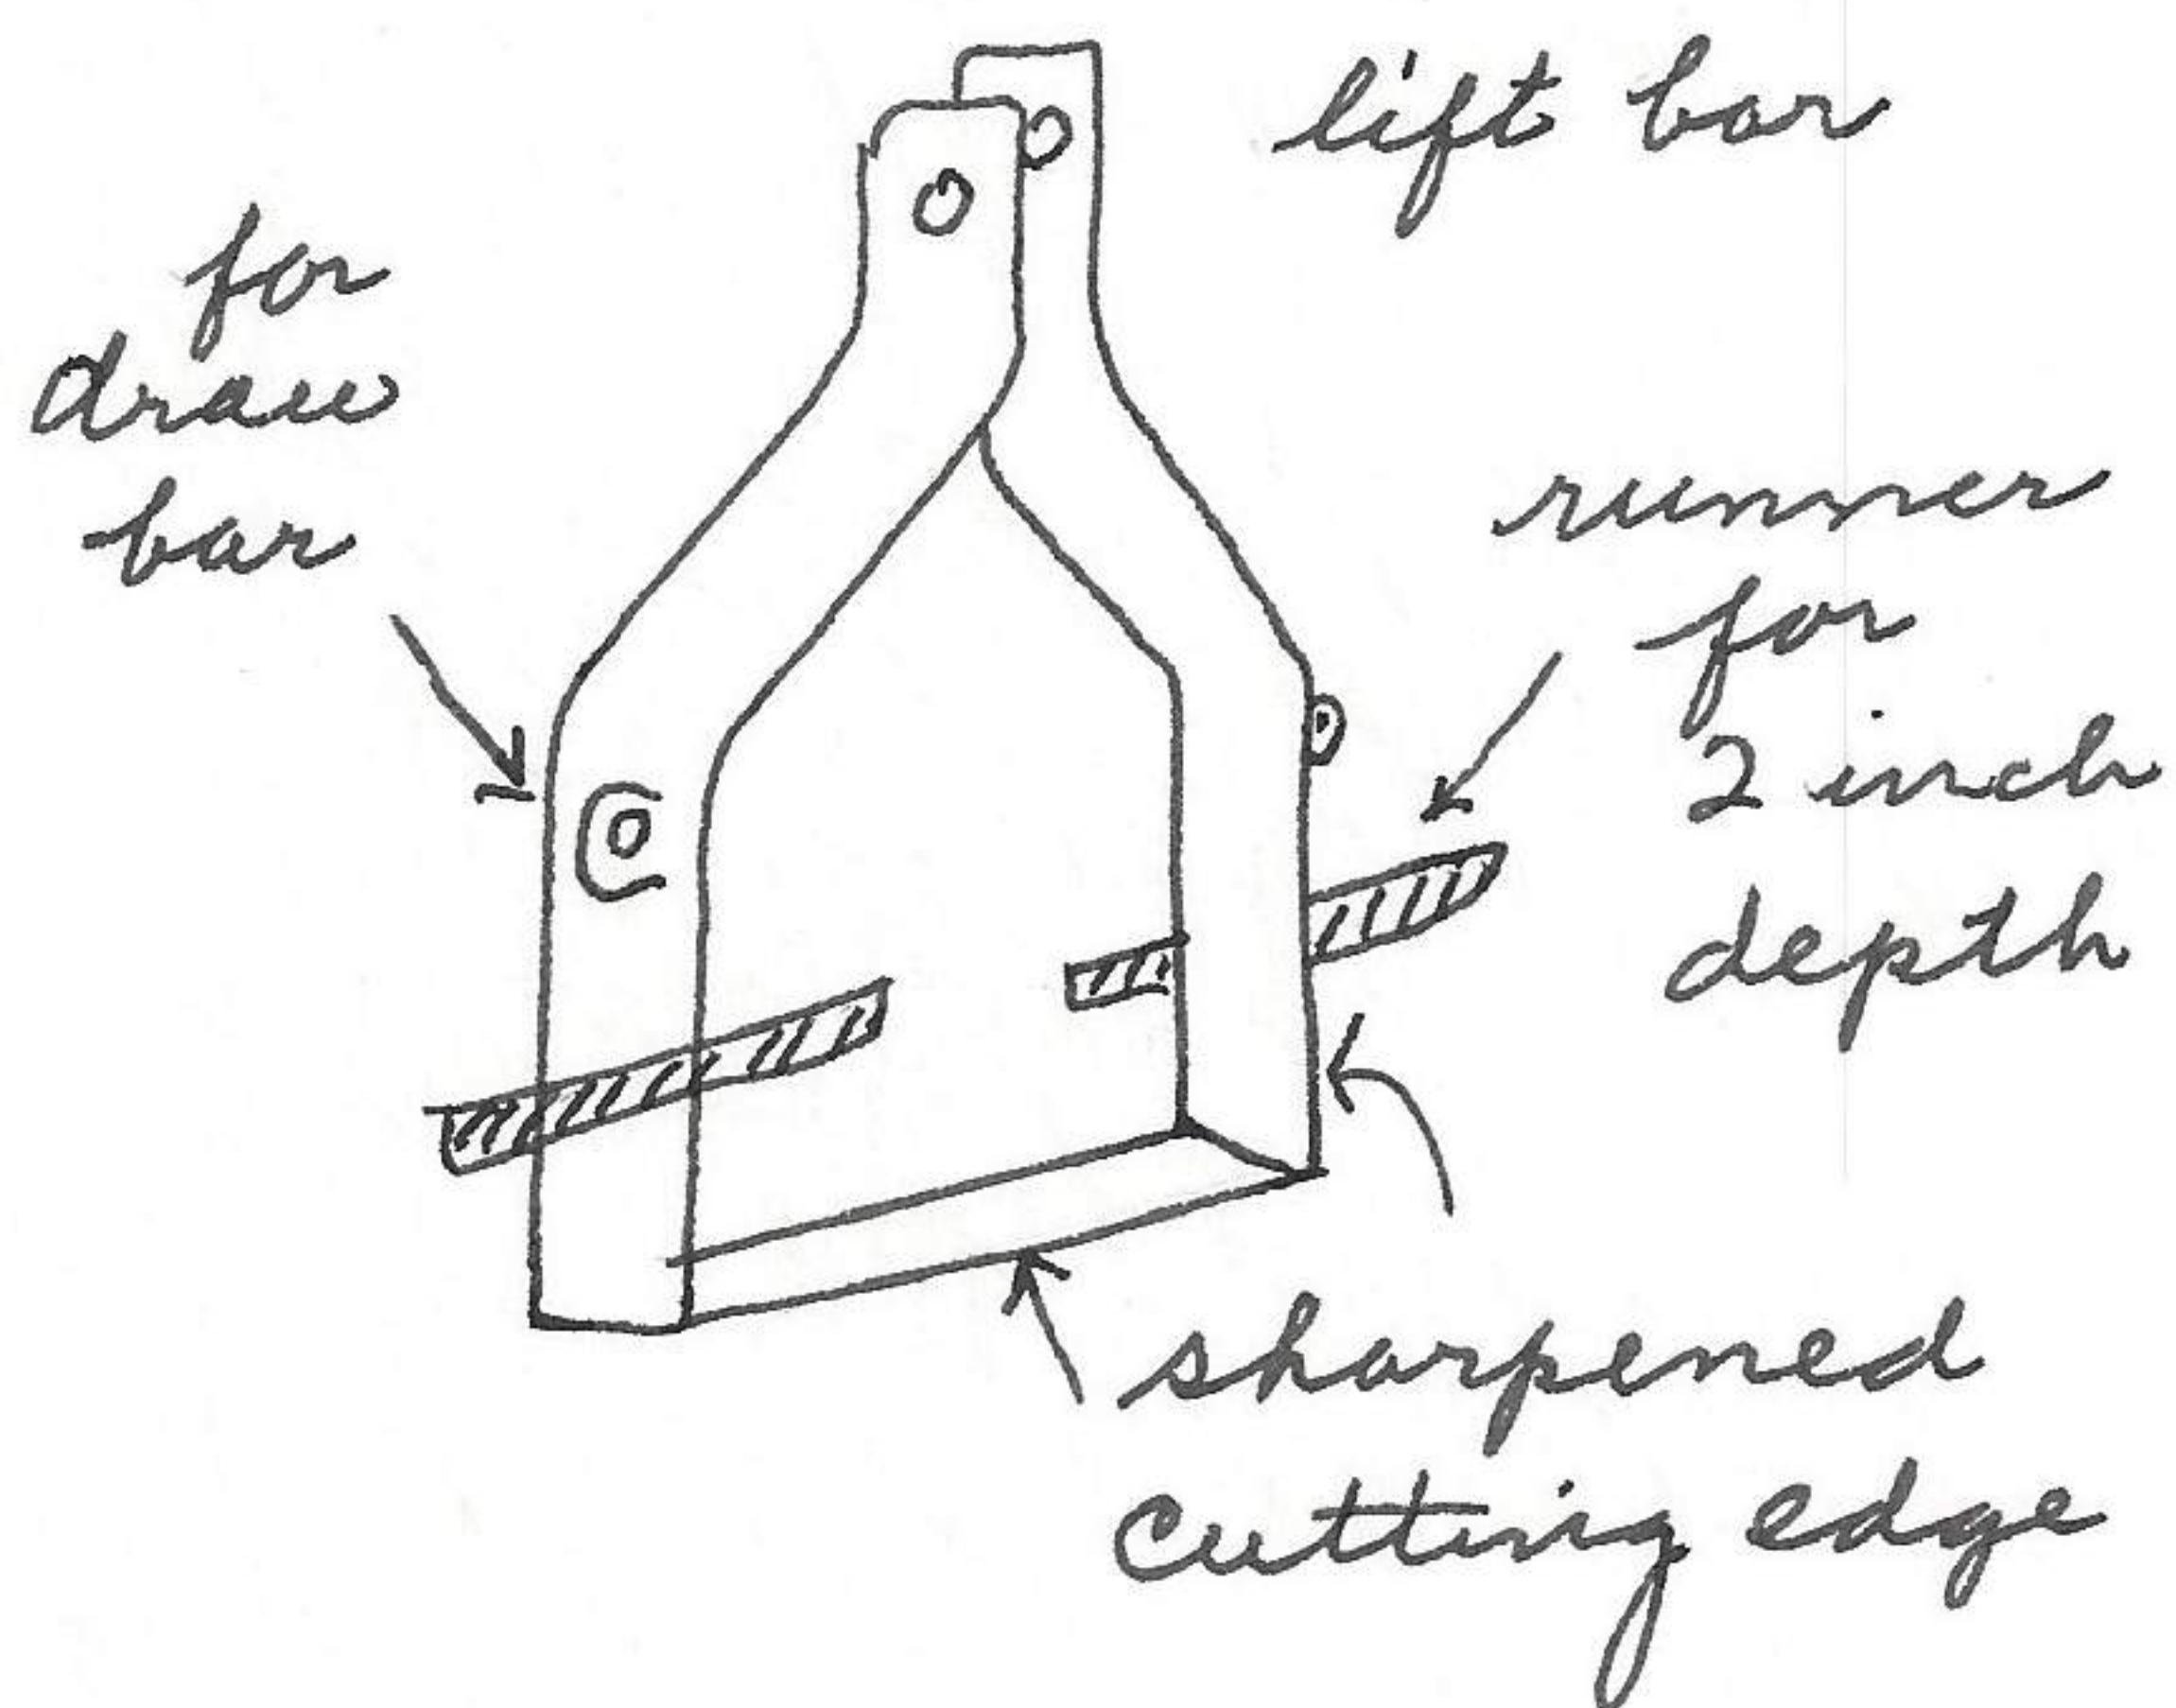 lift bar
for
draw
bar
runner
for
2 inch
depth
sharpened
cutting edge